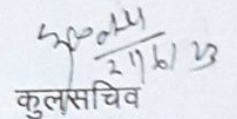 21/6/23
कुलसचिव